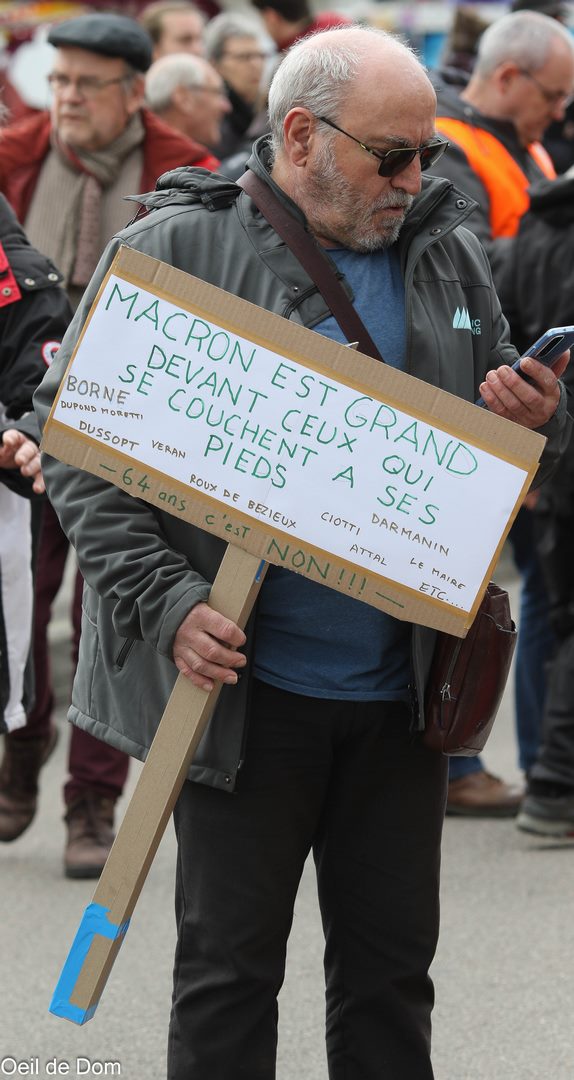 MACRON EST GRAND
DEVANT CEUX QUI
SE COUCHENT A SES
PIEDS
BORNE
DUPOND MORETTI
DUSSOPT
VERAN
ROUX DE BEZIEUX
CIOTTI
DARMANIN
ATTAL
LE MAIRE
ETC....
- 64 ans c'est NON!!! -
Oeil de Dom